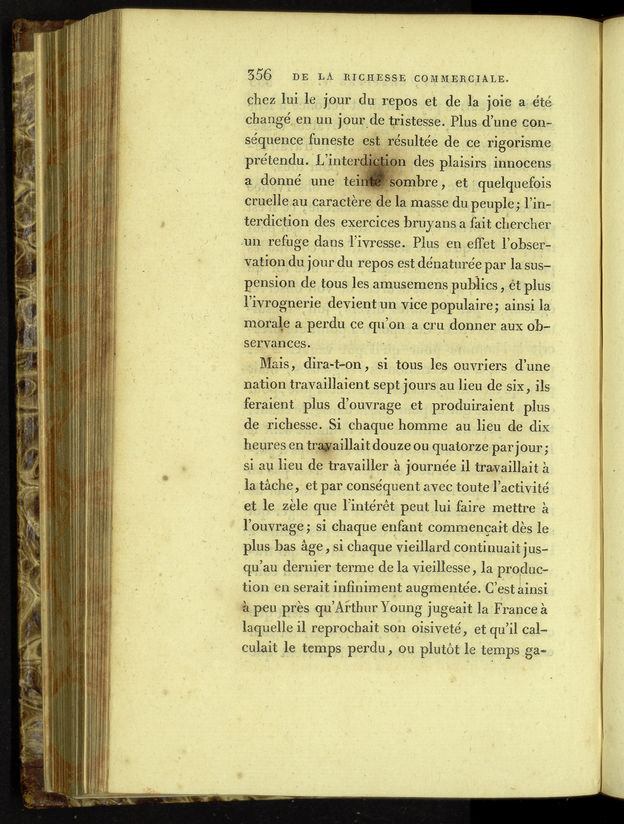 356 DE LA RICHESSE COMMERCIALE.
chez lui le jour du repos et de la joie a été
changé en un jour de tristesse. Plus d'une con-
séquence funeste est résultée de ce rigorisme
prétendu. L'interdiction des plaisirs innocens
a donné une teinte sombre, et quelquefois
cruelle au caractère de la masse du peuple; l'in-
terdiction des exercices bruyans a fait chercher
un refuge dans l'ivresse. Plus en effet l'obser-
vation du jour du repos est dénaturée par la sus-
pension de tous les amusemens publics, et plus
l'ivrognerie devient un vice populaire; ainsi la
morale a perdu ce qu'on a cru donner aux ob-
servances.
Mais, dira-t-on, si tous les ouvriers d'une
nation travaillaient sept jours au lieu de six, ils
feraient plus d'ouvrage et produiraient plus
de richesse. Si chaque homme au lieu de dix
heures en travaillait douze ou quatorze par jour;
si au lieu de travailler à journée il travaillait à
la tâche, et par conséquent avec toute l'activité
et le zèle que l'intérêt peut lui faire mettre à
l'ouvrage; si chaque enfant commençait dès le
plus bas âge, si chaque vieillard continuait jus-
qu'au dernier terme de la vieillesse, la produc-
tion en serait infiniment augmentée. C'est ainsi
à peu près qu'Arthur Young jugeait la France à
laquelle il reprochait son oisiveté, et qu'il cal-
culait le temps perdu, ou plutôt le temps ga-